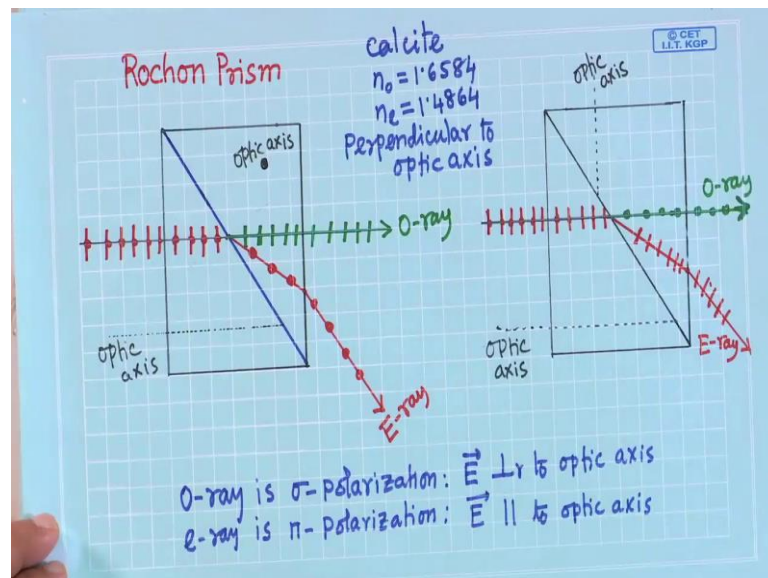 © CET
I.I.T. KGP
Rochon Prism
calcite
n₀ = 1.6584
nₑ = 1.4864
Perpendicular to
optic axis
optic axis
O-ray
optic
axis
E-ray
optic
axis
O-ray
optic
axis
E-ray
O-ray is σ- polarization: E⃗ ⊥r to optic axis
e-ray is π- polarization: E⃗ || to optic axis